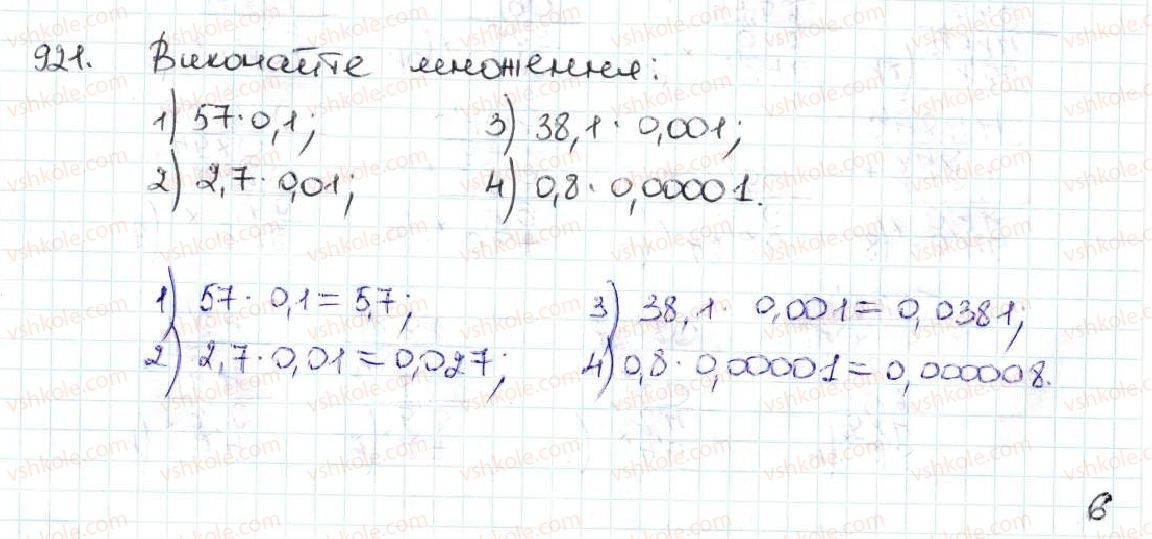 921. Виконайте множення:
1) 57·0,1; 3) 38,1· 0,001;
2) 2,7· 0,01; 4) 0,8· 0,00001.
1) 57· 0,1 = 5,7; 3) 38,1· 0,001 = 0,0381;
2) 2,7·0,01 = 0,027; 4) 0,8· 0,00001 = 0,000008.
6
vshkole.com